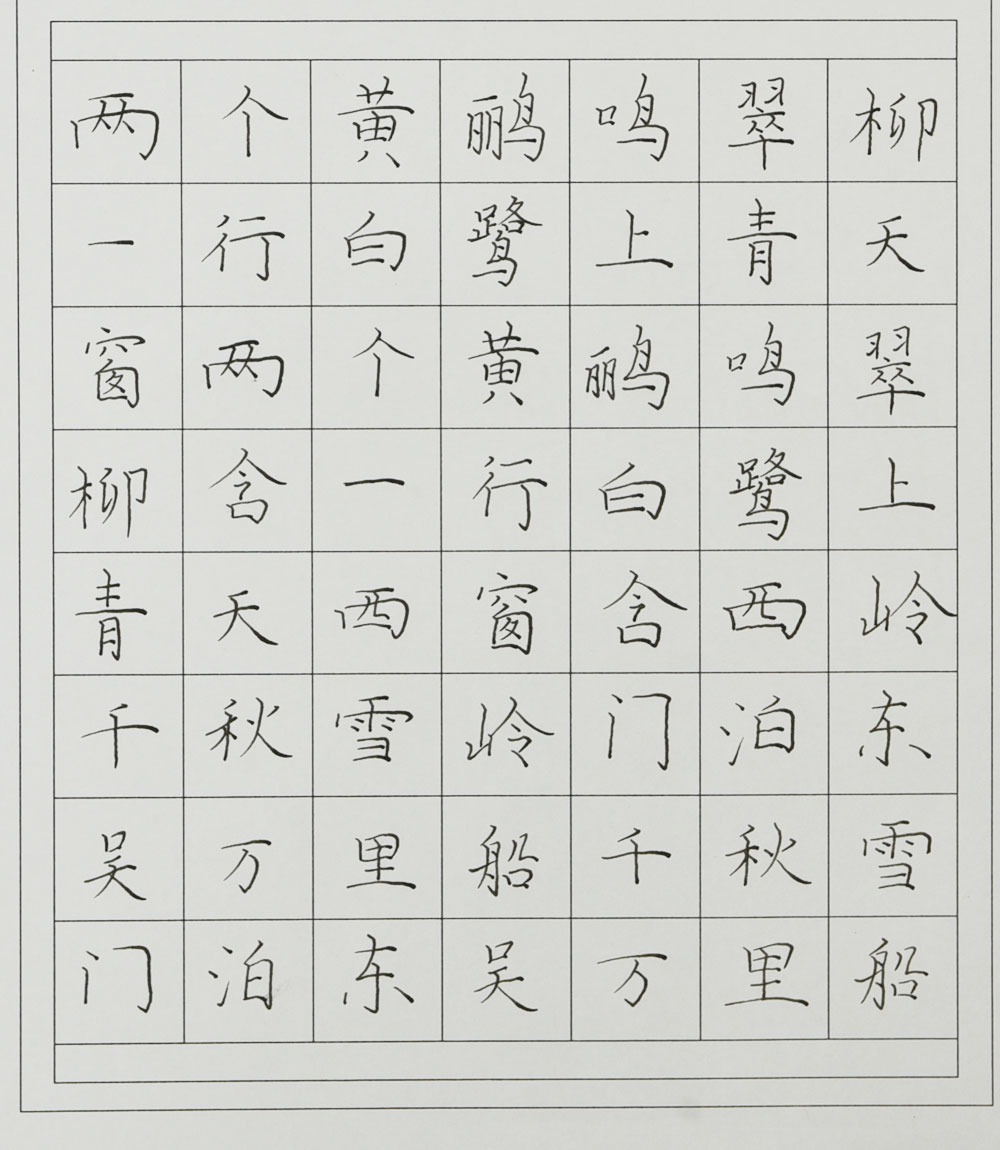 两个黄鹂鸣翠柳
一行白鹭上青天
窗两个黄鹂鸣翠
柳含一行白鹭上
青天西窗含西岭
千秋雪岭门泊东
吴万里船千秋雪
门泊东吴万里船